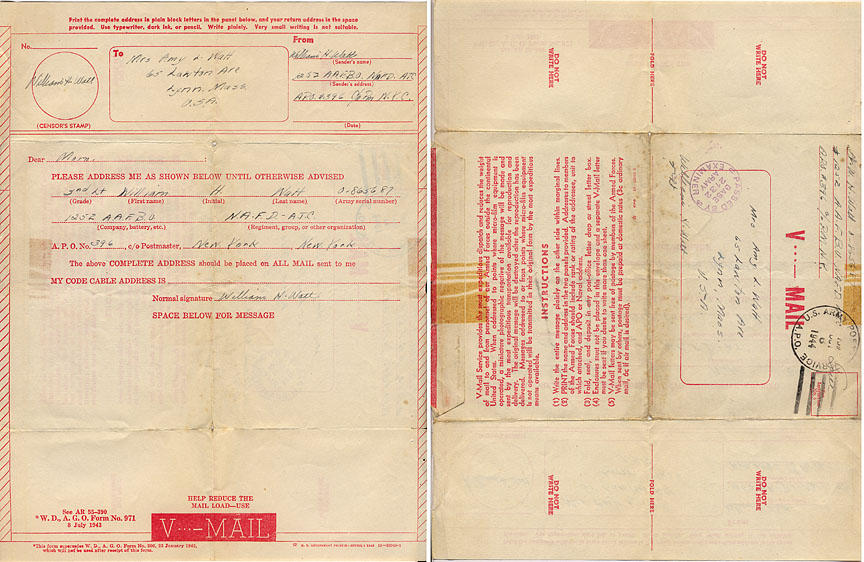 Print the complete address in plain block letters in the panel below, and your return address in the space
provided. Use typewriter, dark ink, or pencil. Write plainly. Very small writing is not suitable.
No.
(CENSOR'S STAMP)
William H. Watt
To
Mrs Amy L Watt
65 Lawton Ave
Lynn, Mass.
U.S.A.
From
William H Watt
(Sender's name)
1252 AAFBU NAFD. ATC
(Sender's address)
APO #396 N.Y.C.
(Date)
Dear Mom :
PLEASE ADDRESS ME AS SHOWN BELOW UNTIL OTHERWISE ADVISED
2nd Lt William H. Watt O-865687
(Grade) (First name) (Initial) (Last name) (Army serial number)
1252 A.A.F.B.U. N.A.F.D-ATC
(Company, battery, etc.) (Regiment, group, or other organization)
A. P. O. No. 396, c/o Postmaster, New York New York
The above COMPLETE ADDRESS should be placed on ALL MAIL sent to me
MY CODE CABLE ADDRESS IS
Normal signature William H. Watt
SPACE BELOW FOR MESSAGE
HELP REDUCE THE
MAIL LOAD—USE
V···— MAIL
See AR 55-390
*W. D., A. G. O. Form No. 971
8 July 1943
*This form supersedes W. D., A. G. O. Form No. 206, 22 January 1942,
which will not be used after receipt of this form.
DO NOT
WRITE HERE
—FOLD HERE—
DO NOT
WRITE HERE
V-Mail Service provides the most expeditious dispatch and reduces the weight
of mail to and from personnel of our Armed Forces outside the continental
United States. When addressed to points where micro-film equipment is
operated, a miniature photographic negative of the message will be made and
sent by the most expeditious transportation available for reproduction and
delivery. The original message will be destroyed after the reproduction has been
delivered. Messages addressed to or from points where micro-film equipment
is not operated will be transmitted in their original form by the most expeditious
means available.
INSTRUCTIONS
(1) Write the entire message plainly on the other side within marginal lines.
(2) PRINT the name and address in the two panels provided. Addresses to members
of the Armed Forces should include rank or rating of the addressee, unit to
which attached, and APO or Naval address.
(3) Fold, seal, and deposit in any post-office letter drop or street letter box.
(4) Enclosures must not be placed in this envelope and a separate V-Mail letter
must be sent if you desire to write more than one sheet.
(5) V-Mail letters may be sent free of postage by members of the Armed Forces.
When sent by others, postage must be prepaid at domestic rates (3c ordinary
mail, 6c if air mail is desired).
PASSED BY
BASE
ARMY
EXAMINER
Mrs Amy L Watt
65 Lawton Ave
Lynn, Mass.
USA
V···— MAIL
U.S. ARMY POSTAL SERVICE
A.P.O.
1944
DO NOT
WRITE HERE
—FOLD HERE—
DO NOT
WRITE HERE